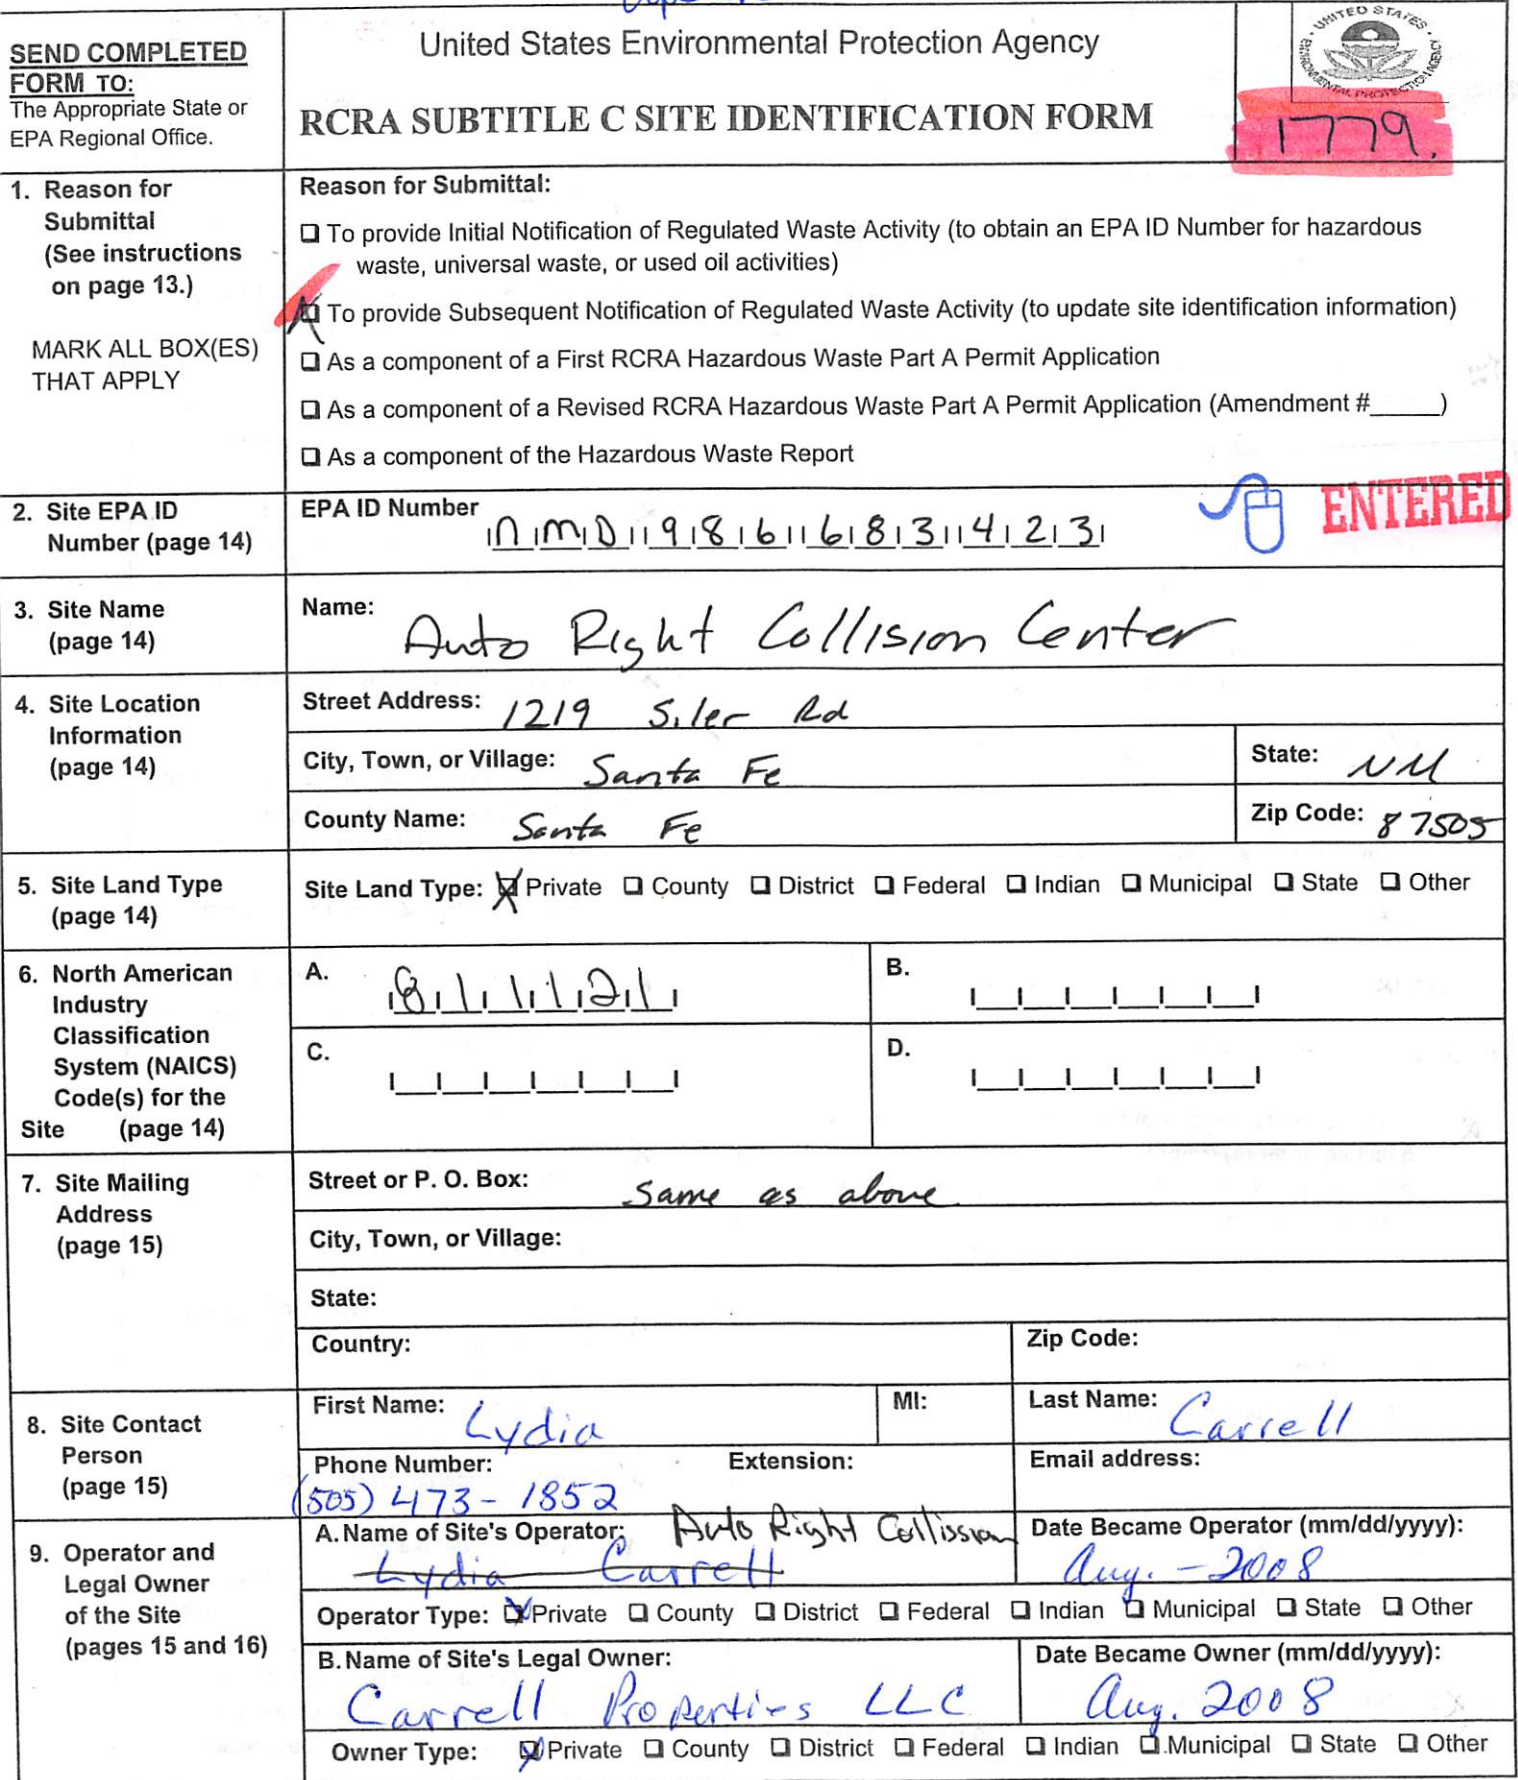 SEND COMPLETED
FORM TO:
The Appropriate State or
EPA Regional Office.
United States Environmental Protection Agency
RCRA SUBTITLE C SITE IDENTIFICATION FORM
UNITED STATES
ENVIRONMENTAL PROTECTION AGENCY
1779.
1. Reason for
Submittal
(See instructions
on page 13.)
MARK ALL BOX(ES)
THAT APPLY
Reason for Submittal:
❑ To provide Initial Notification of Regulated Waste Activity (to obtain an EPA ID Number for hazardous
waste, universal waste, or used oil activities)
☒ To provide Subsequent Notification of Regulated Waste Activity (to update site identification information)
❑ As a component of a First RCRA Hazardous Waste Part A Permit Application
❑ As a component of a Revised RCRA Hazardous Waste Part A Permit Application (Amendment #_____)
❑ As a component of the Hazardous Waste Report
2. Site EPA ID
Number (page 14)
EPA ID Number
NMD 986 683 423
ENTERED
3. Site Name
(page 14)
Name: Auto Right Collision Center
4. Site Location
Information
(page 14)
Street Address: 1219 Siler Rd
City, Town, or Village: Santa Fe
State: NM
County Name: Santa Fe
Zip Code: 87505
5. Site Land Type
(page 14)
Site Land Type: ☒ Private ❑ County ❑ District ❑ Federal ❑ Indian ❑ Municipal ❑ State ❑ Other
6. North American
Industry
Classification
System (NAICS)
Code(s) for the
Site (page 14)
A. 811121
B.
C.
D.
7. Site Mailing
Address
(page 15)
Street or P. O. Box: Same as above
City, Town, or Village:
State:
Country:
Zip Code:
8. Site Contact
Person
(page 15)
First Name: Lydia
MI:
Last Name: Carrell
Phone Number: (505) 473-1852
Extension:
Email address:
9. Operator and
Legal Owner
of the Site
(pages 15 and 16)
A. Name of Site's Operator: Auto Right Collission
Lydia Carrell
Date Became Operator (mm/dd/yyyy):
Aug. - 2008
Operator Type: ☒ Private ❑ County ❑ District ❑ Federal ❑ Indian ❑ Municipal ❑ State ❑ Other
B. Name of Site's Legal Owner:
Carrell Properties LLC
Date Became Owner (mm/dd/yyyy):
Aug. 2008
Owner Type: ☒ Private ❑ County ❑ District ❑ Federal ❑ Indian ❑ Municipal ❑ State ❑ Other